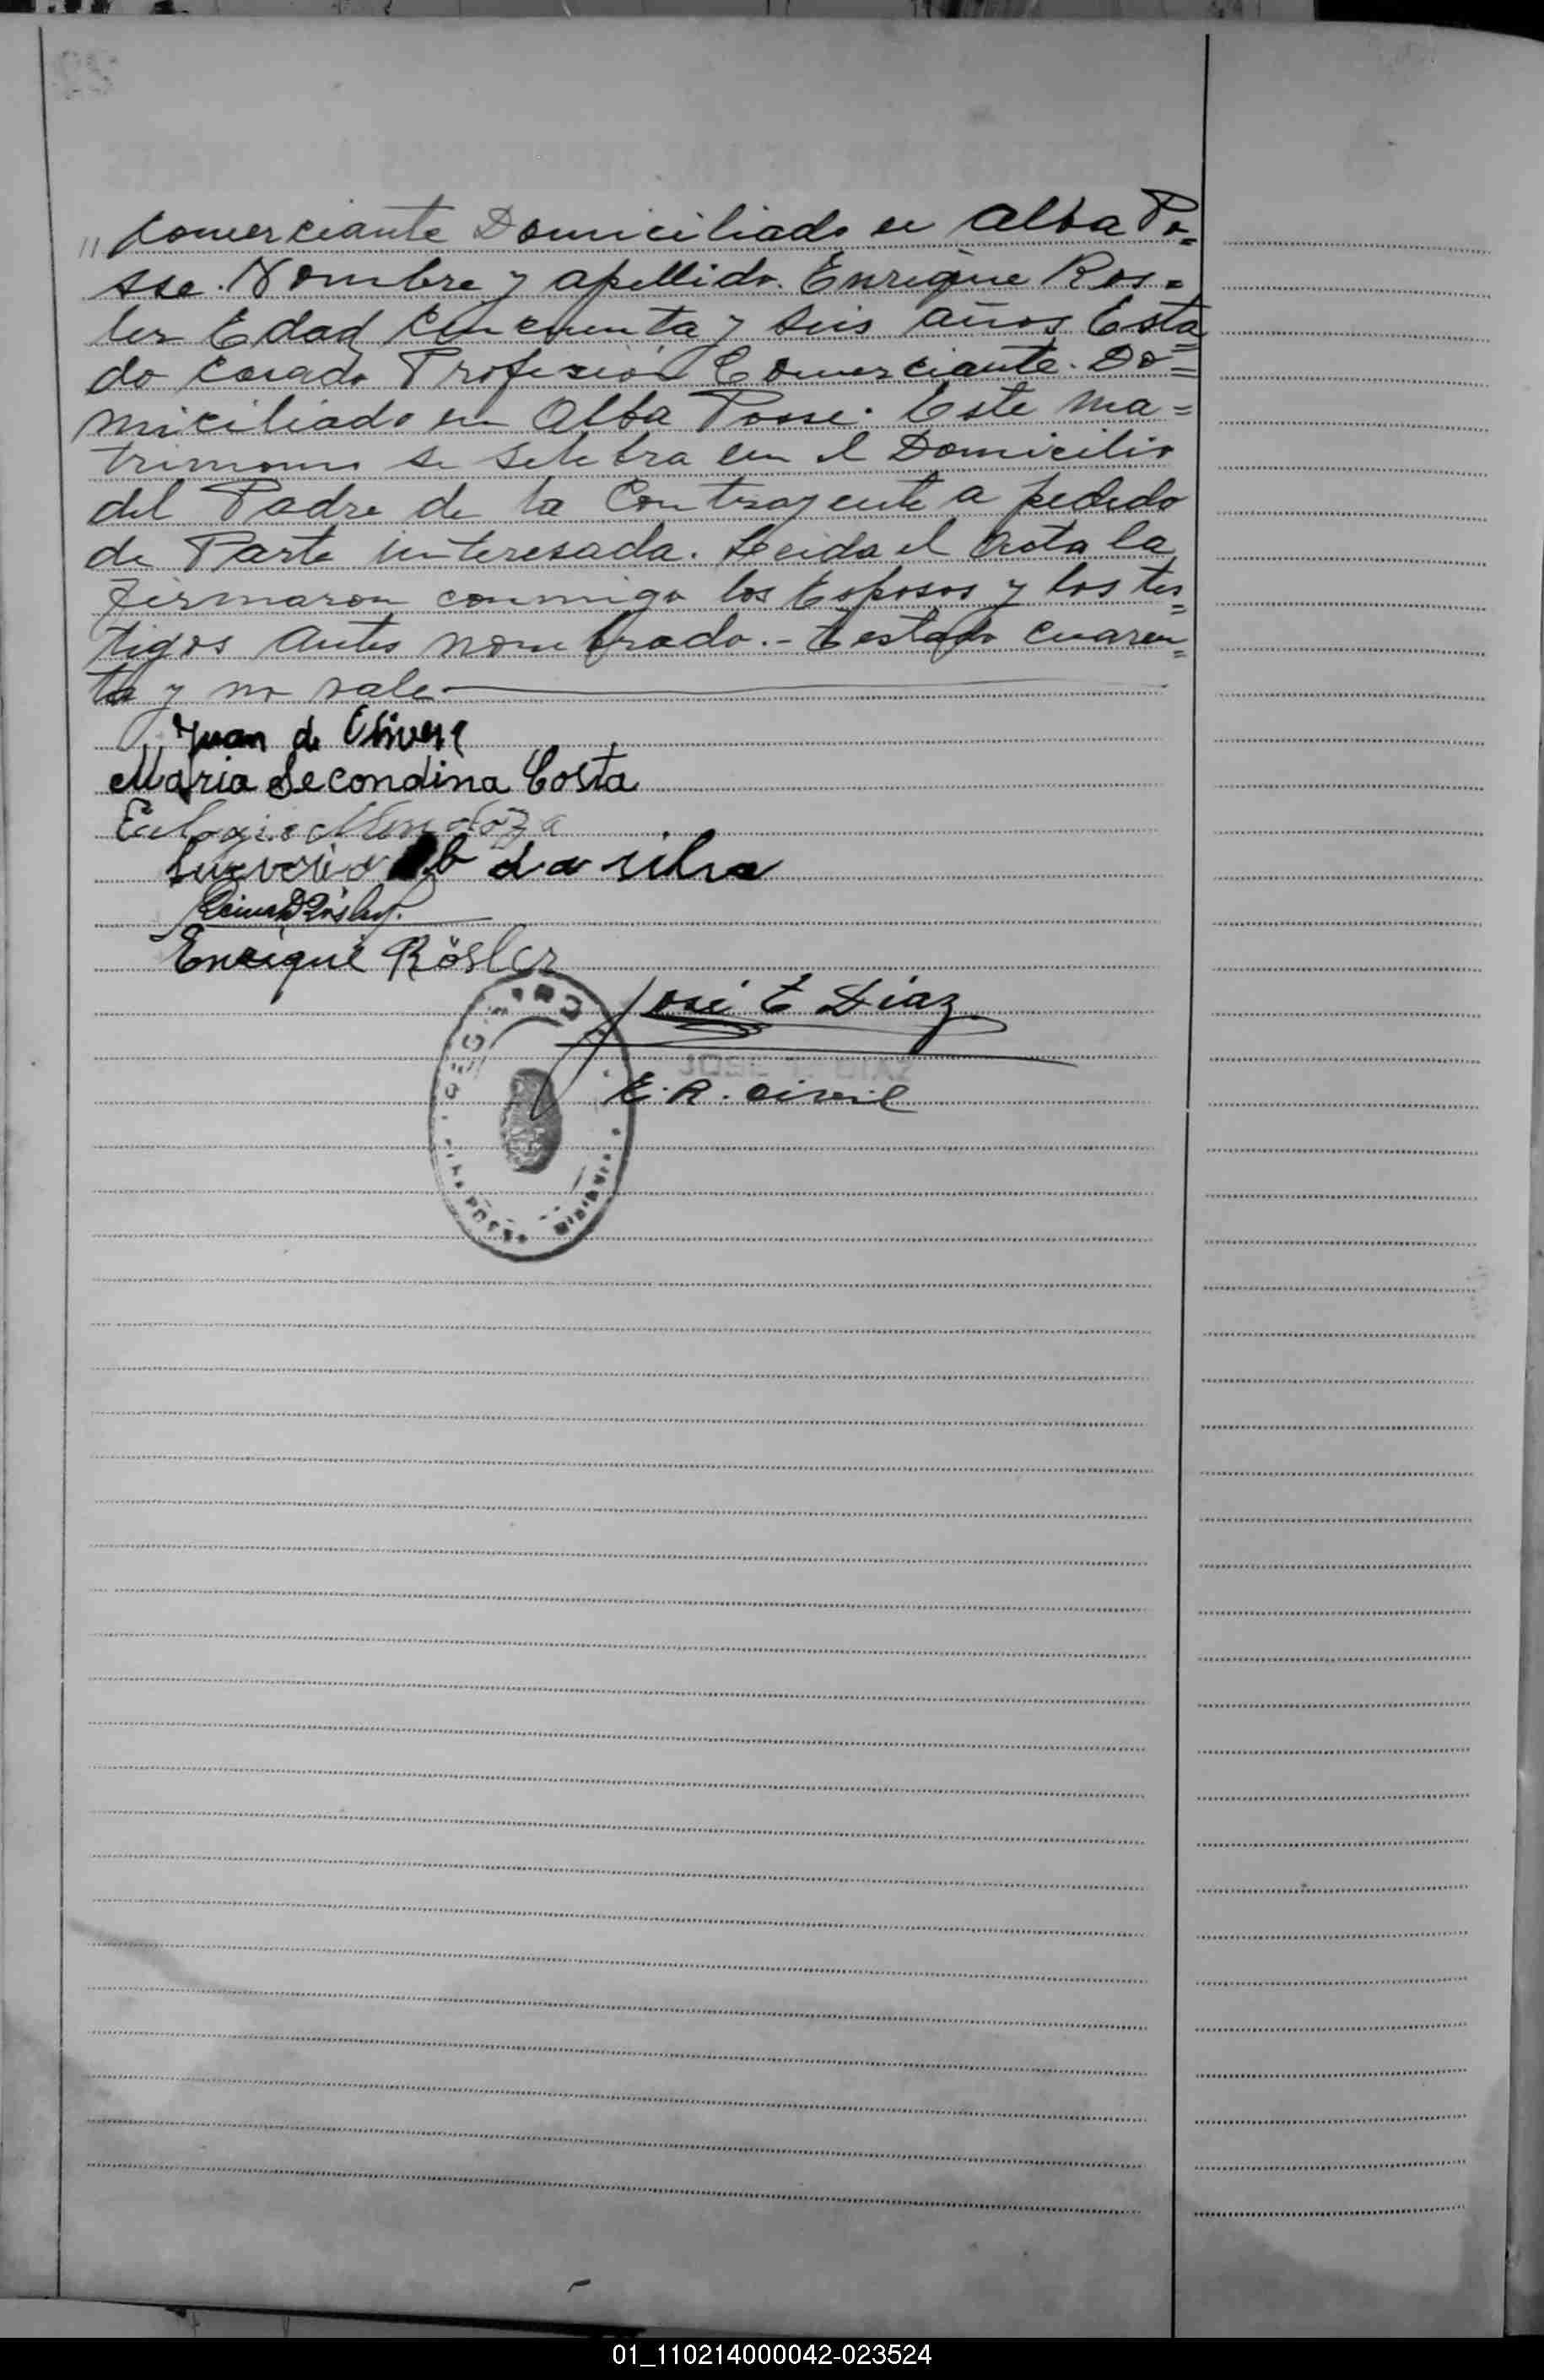 " Comerciante Domiciliado en Alba Po=
sse. Nombre y apellido. Enrique Ros=
ler Edad Cincuenta y seis años Esta
do Casado Profesión Comerciante. Do=
miciliado en Alba Posse. Este ma=
trimonio se selebra en el Domicilio
del Padre de la Contrayente a pedido
de Parte interesada. Leida el Acta la
firmaron conmigo los Esposos y los tes=
tigos antes nombrado.- Testado cuaren=
ta y no vale
Juan de Olivera
Maria Secondina Costa
Eulogio Mendoza
da silva
Enrique Rösler
José E Diaz
JOSE E. DIAZ
E. R. civil
01_110214000042-023524